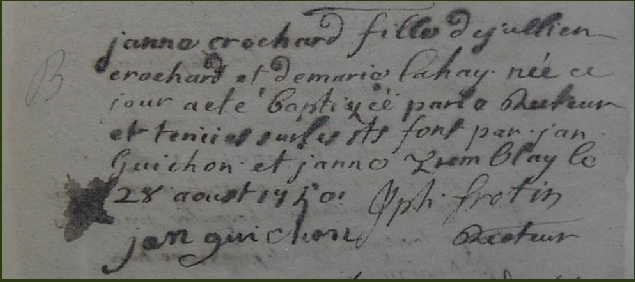 B
janne crochard fille de jullien
crochard et de marie lahay née ce
jour a eté baptizéé par le Recteur
et tenüe sur les sts font par jan
Guichon et janne Tremblay le
28 aoust 1750 Jph. frotin
jan guichon Recteur